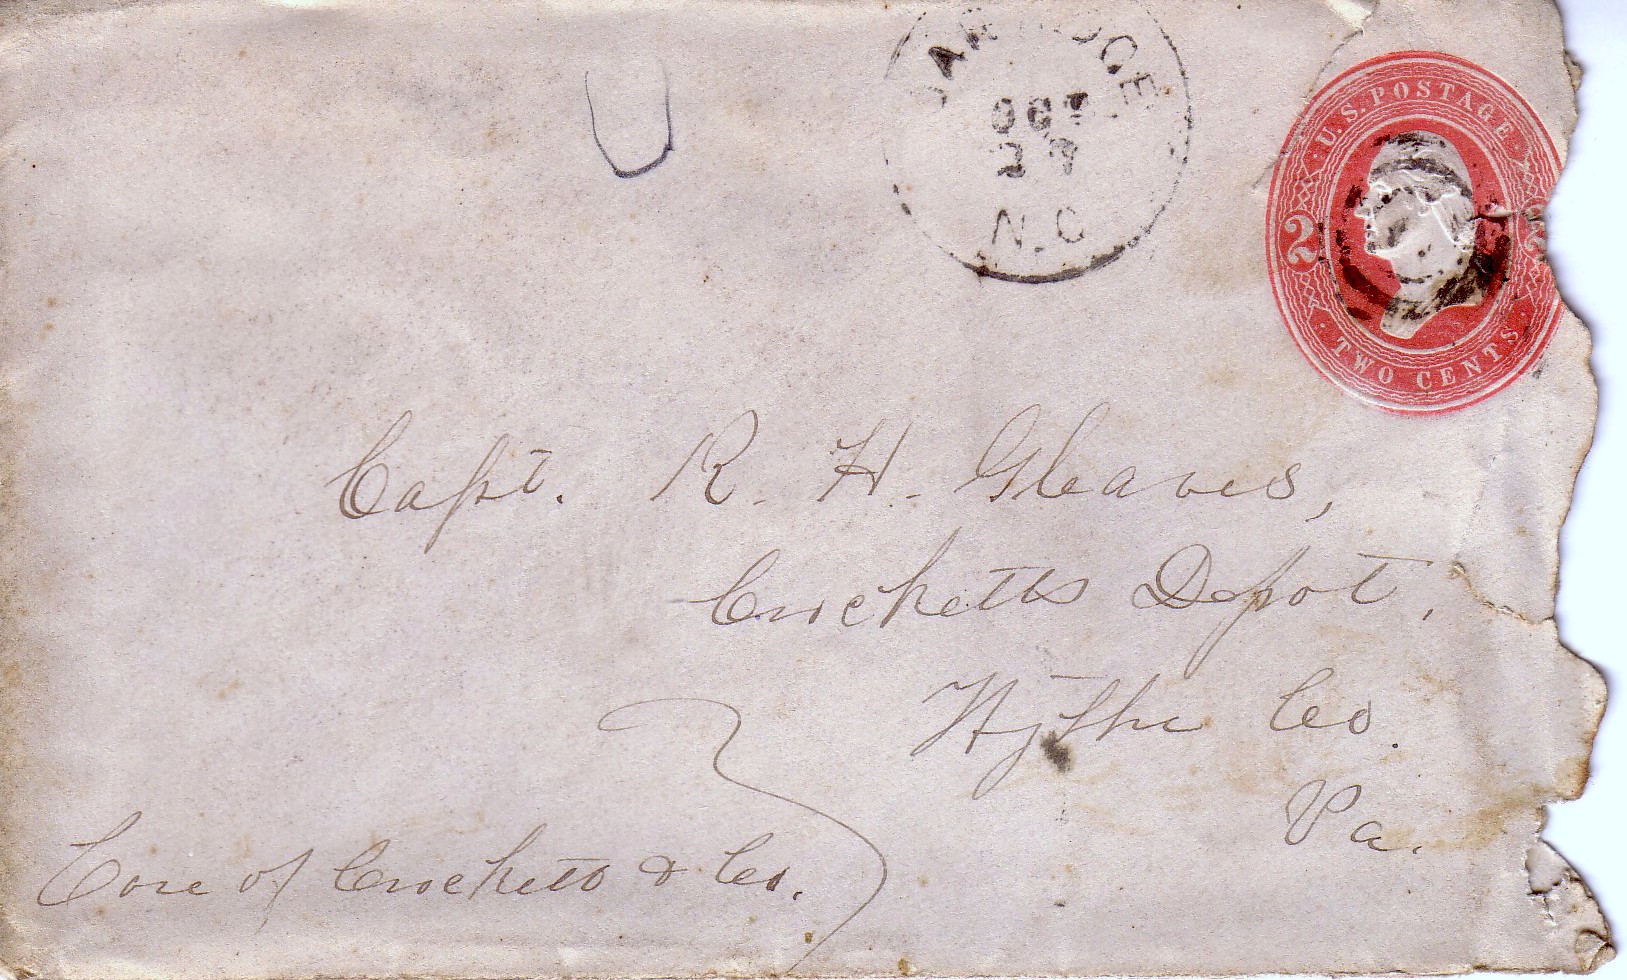 OCT
N.C.
U.S. POSTAGE
2 2
TWO CENTS
Capt. R. H. Gleaves,
Crocketts Depot,
Wythe Co.
Va.
Care of Crocketts & Co.